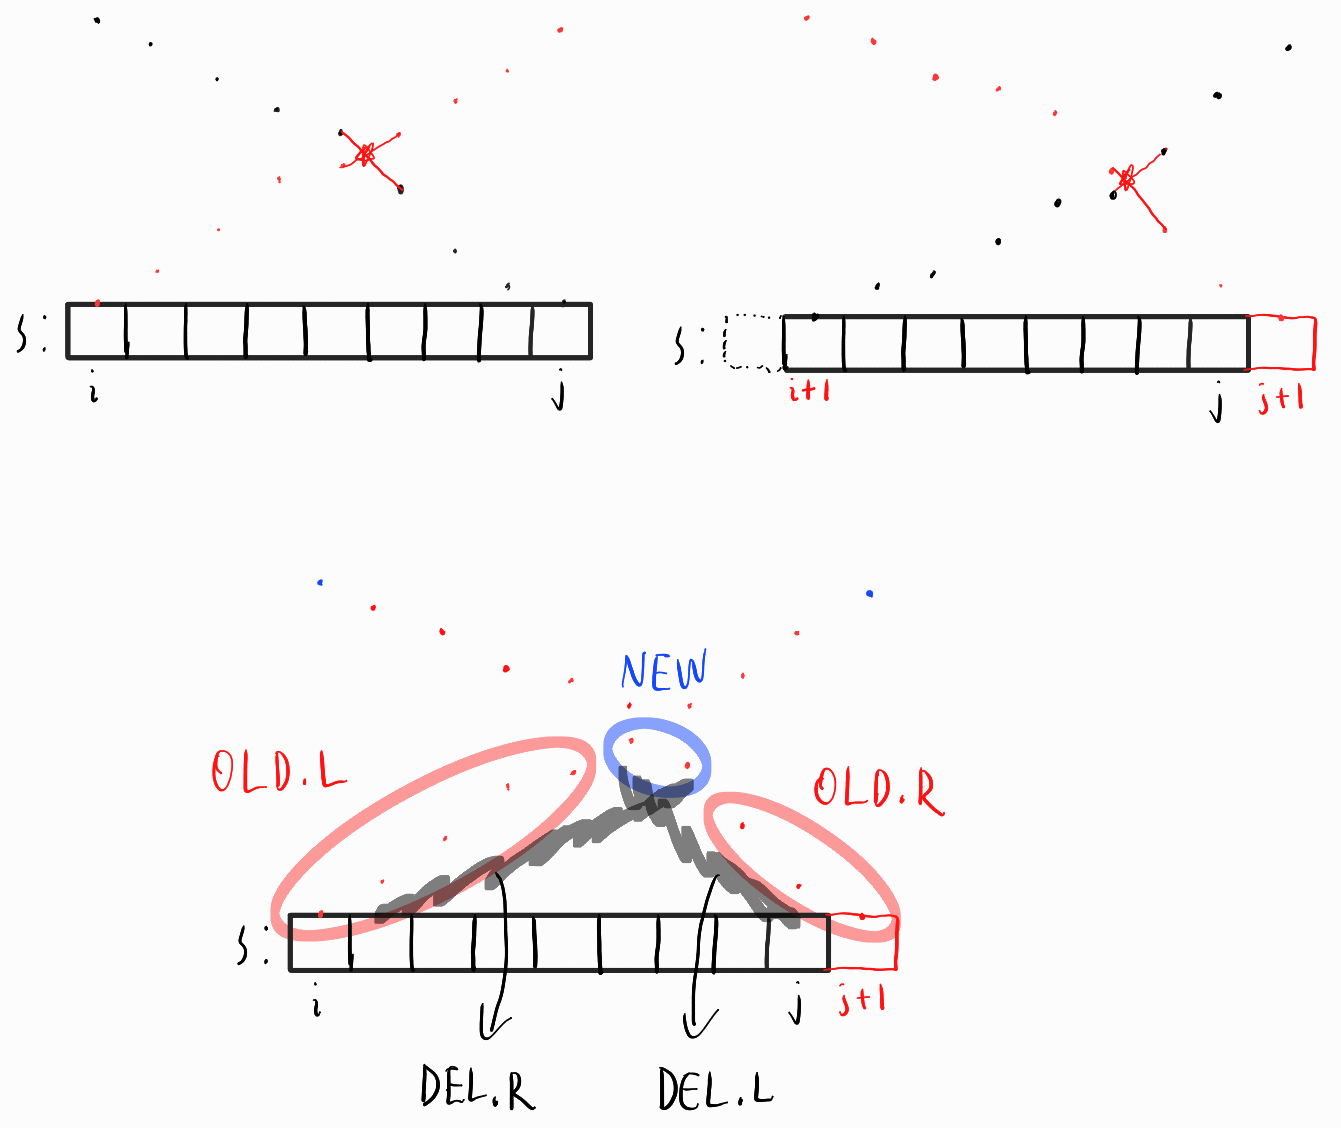 S:
i
j
S:
i+1
j
j+1
NEW
OLD.L
OLD.R
S:
i
j
j+1
DEL.R
DEL.L